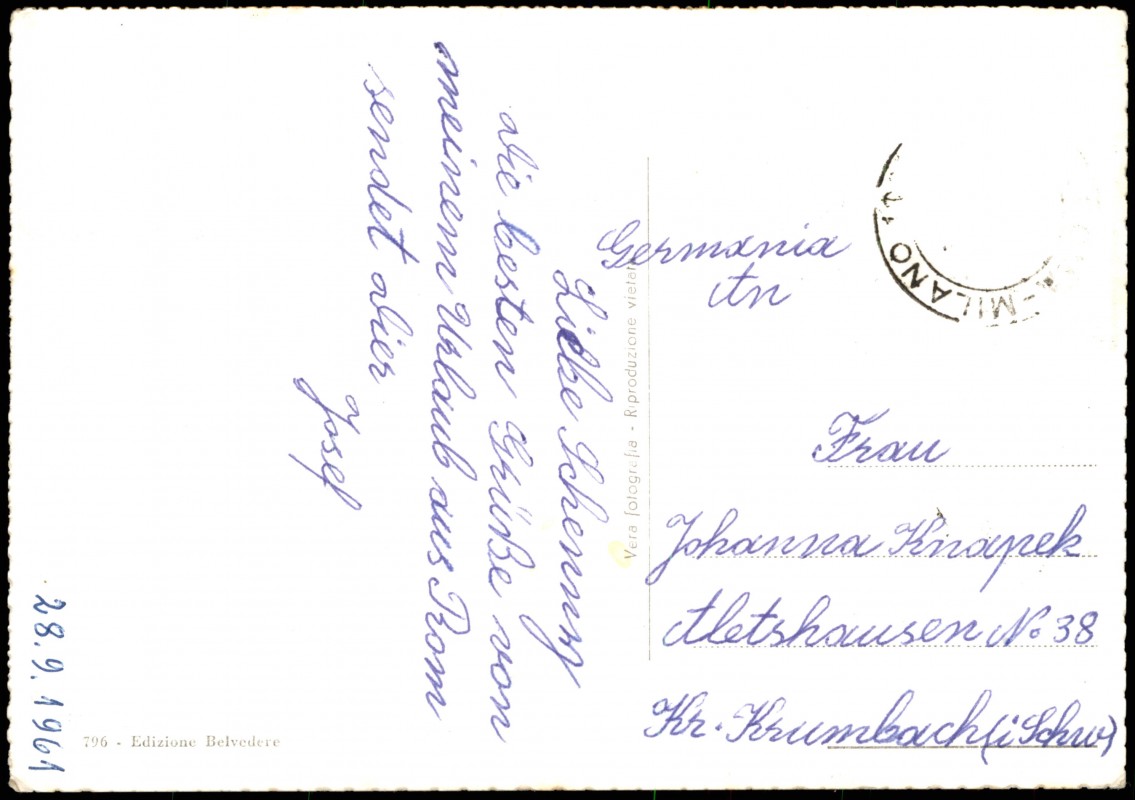 die besten Grüße von
meinem Urlaub aus Rom
sendet dier
Josef
28.9.1961
796 - Edizione Belvedere
Vera fotografia - Riproduzione vietata
MILANO
Germania
An
Frau
Johanna Knapek
Aletshausen No 38
Kr. Krumbach (i Schw)